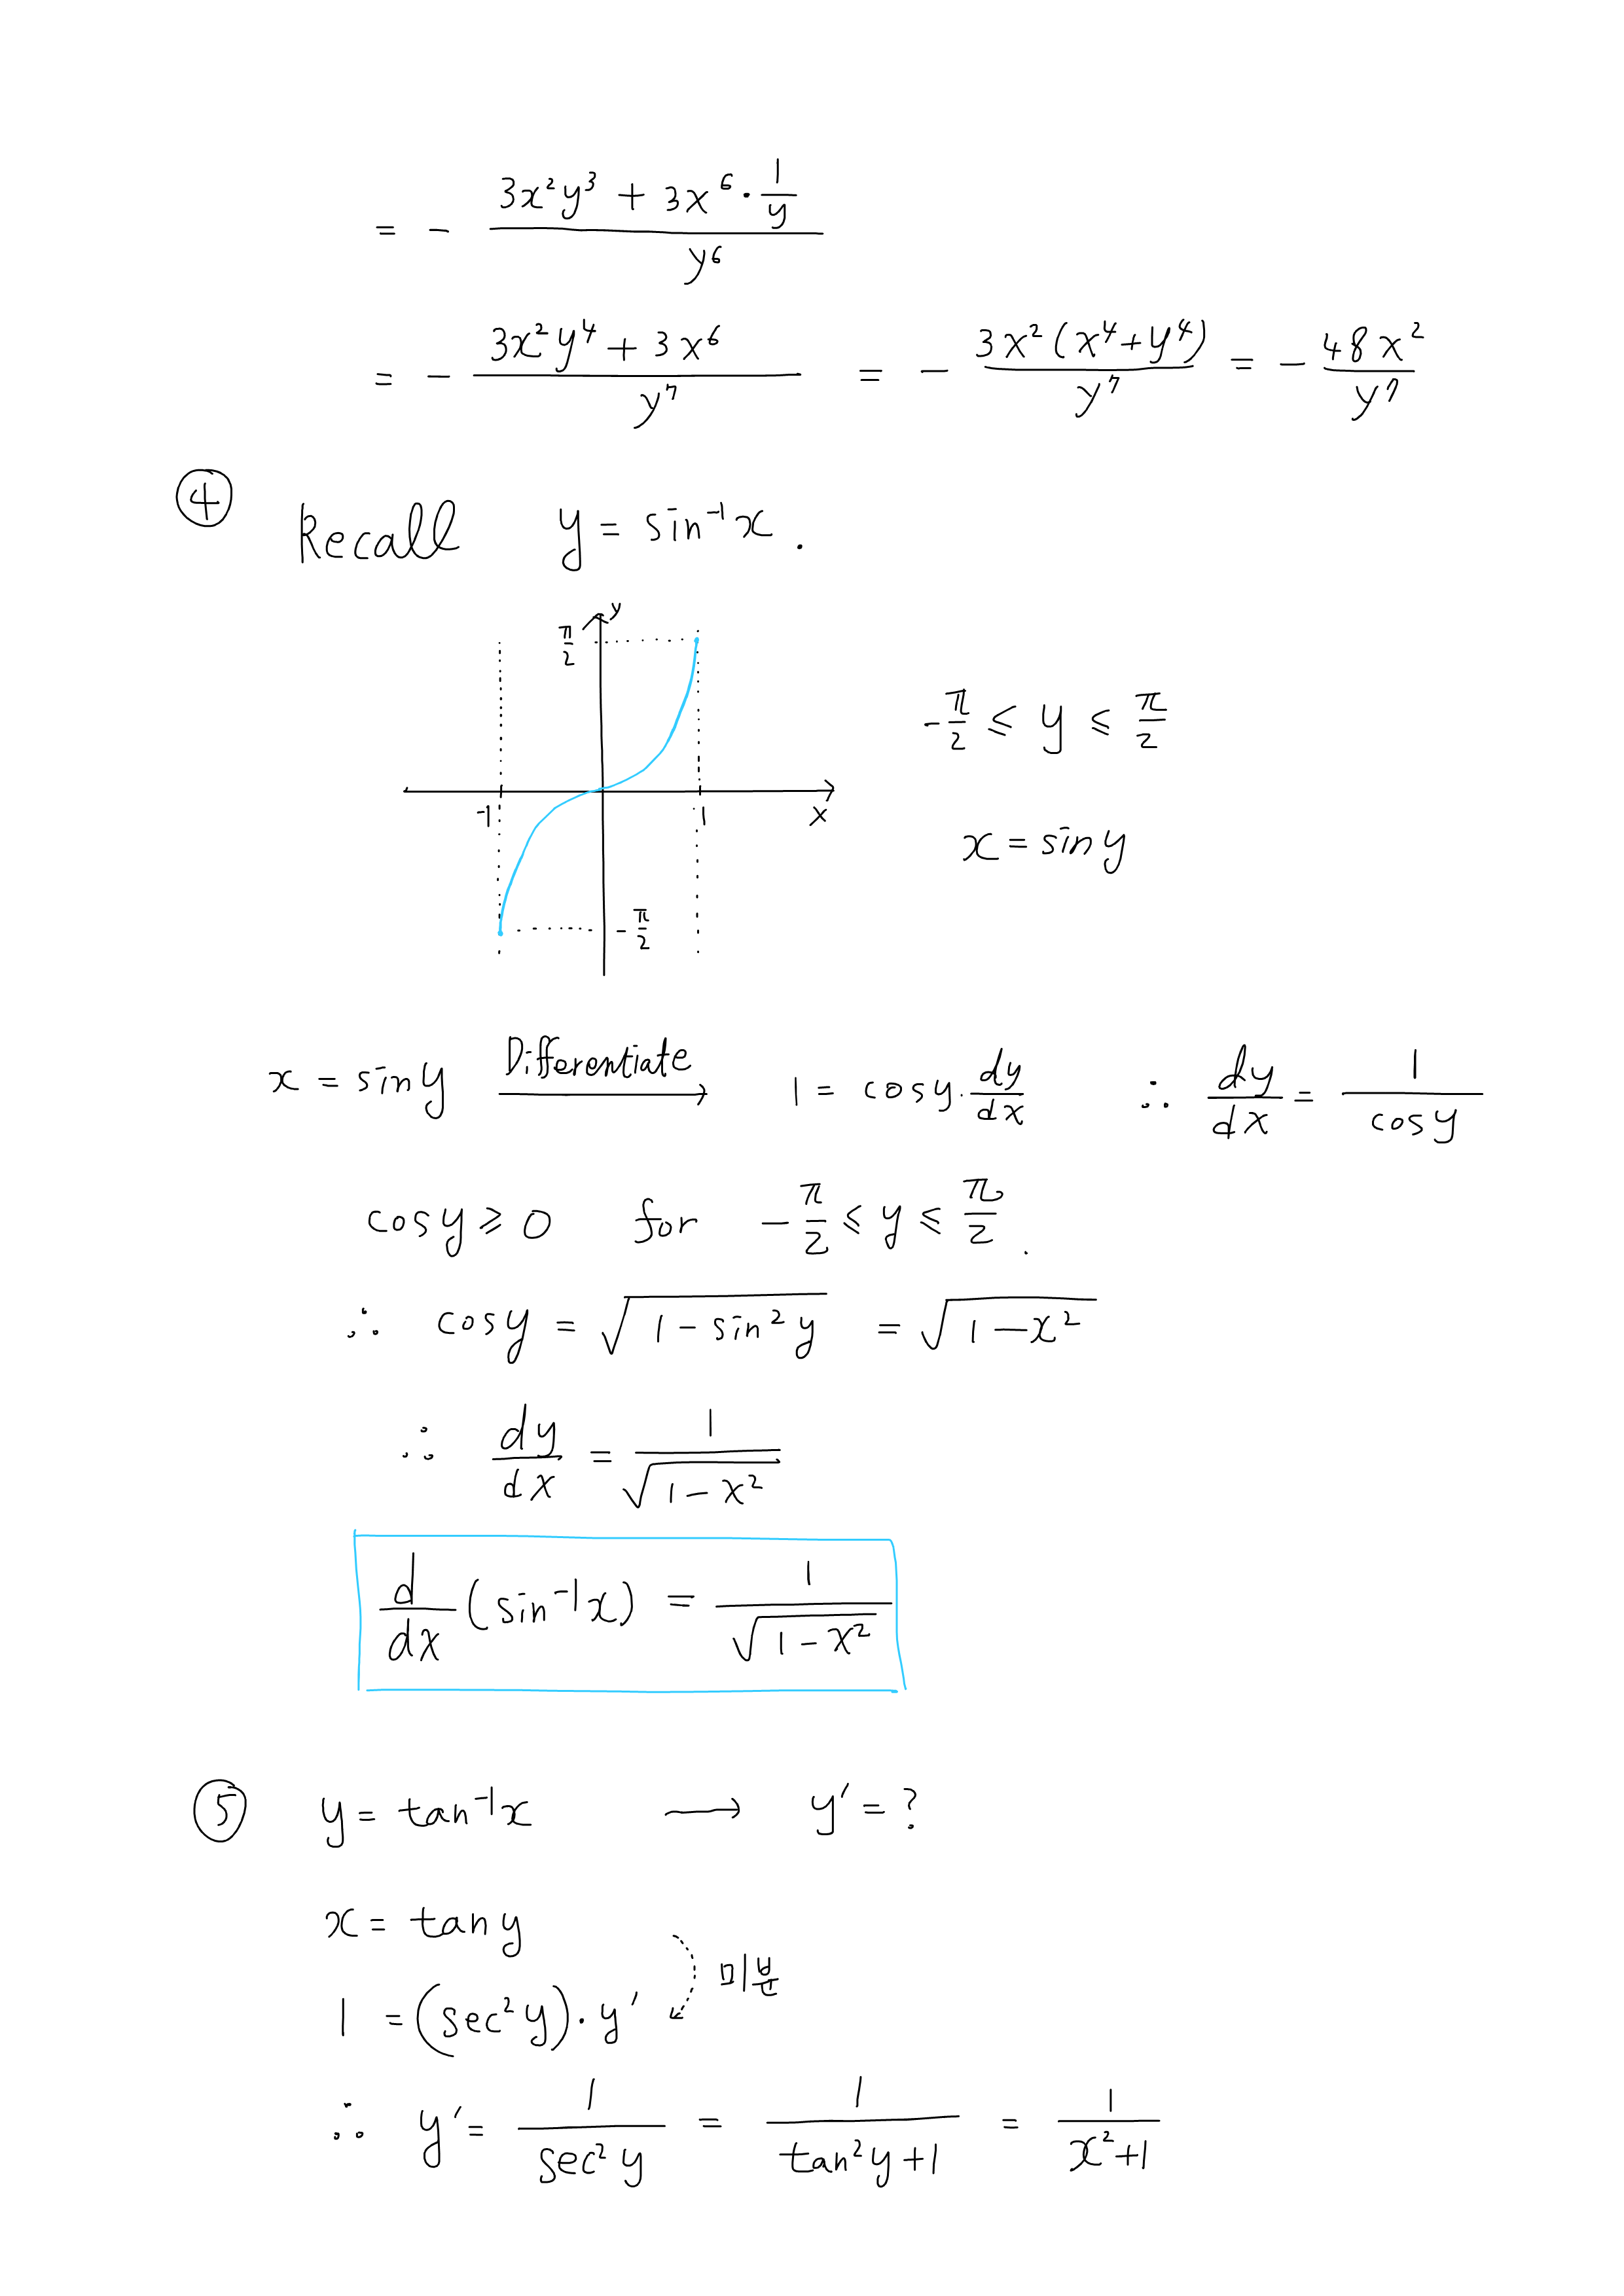 = - \frac{3x^2y^3 + 3x^6 \cdot \frac{1}{y}}{y^6}
= - \frac{3x^2y^4 + 3x^6}{y^7} = - \frac{3x^2(x^4+y^4)}{y^7} = - \frac{48x^2}{y^7}
④ Recall y = sin⁻¹x .
y
\frac{π}{2}
-\frac{π}{2} ≤ y ≤ \frac{π}{2}
-1 1 x
x = sin y
-\frac{π}{2}
x = sin y \xrightarrow{Differentiate} 1 = cos y · \frac{dy}{dx} ∴ \frac{dy}{dx} = \frac{1}{cos y}
cos y ≥ 0 for -\frac{π}{2} ≤ y ≤ \frac{π}{2} .
∴ cos y = \sqrt{1 - sin^2 y} = \sqrt{1 - x^2}
∴ \frac{dy}{dx} = \frac{1}{\sqrt{1 - x^2}}
\frac{d}{dx} (sin⁻¹x) = \frac{1}{\sqrt{1 - x^2}}
⑤ y = tan⁻¹x → y' = ?
x = tan y
미분
1 = (sec^2 y) · y'
∴ y' = \frac{1}{sec^2 y} = \frac{1}{tan^2 y + 1} = \frac{1}{x^2 + 1}